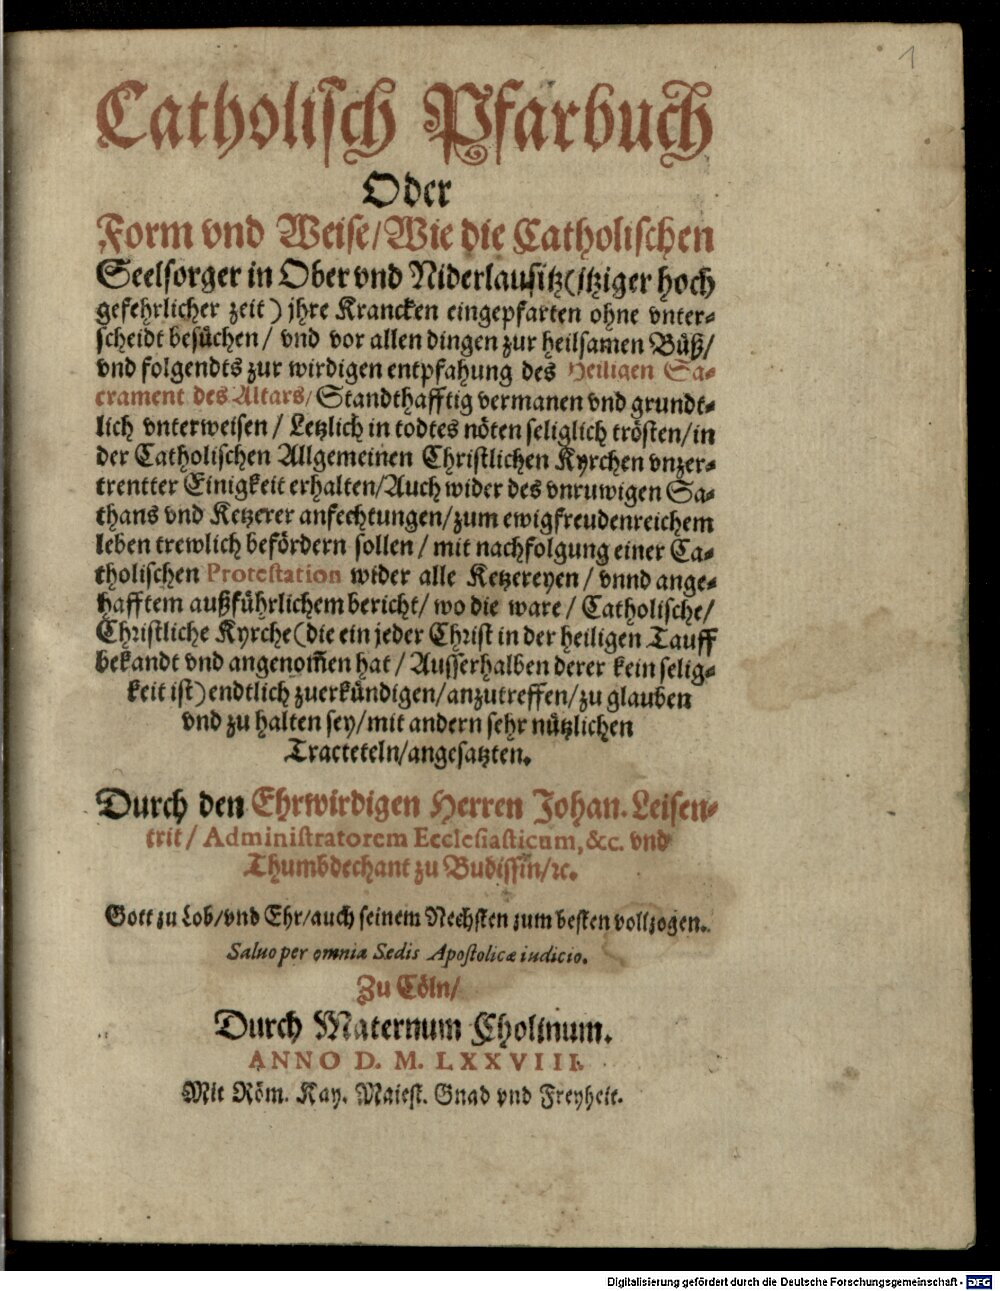 1
Catholisch Pfarbuch
Oder
Form vnd Weise/Wie die Catholischen
Seelsorger in Ober vnd Niderlausitz(itziger hoch
gefehrlicher zeit) jhre Krancken eingepfarten ohne vnter-
scheidt besůchen/ vnd vor allen dingen zur heilsamen Bůß/
vnd folgendts zur wirdigen entpfahung des Heiligen Sa-
crament des Altars/ Standthafftig vermanen vnd grundt-
lich vnterweisen/ Letzlich in todtes nöten seliglich trösten/in
der Catholischen Allgemeinen Christlichen Kyrchen vnzer-
trentter Einigkeit erhalten/Auch wider des vnruwigen Sa-
thans vnd Ketzerer anfechtungen/zum ewigfreudenreichem
leben trewlich befördern sollen/ mit nachfolgung einer Ca-
tholischen Protestation wider alle Ketzereyen/ vnnd ange-
hafftem außführlichem bericht/ wo die ware/ Catholische/
Christliche Kyrche(die ein jeder Christ in der heiligen Tauff
bekandt vnd angenom̃en hat/ Ausserhalben derer kein selig-
keit ist) endtlich zuerkündigen/anzutreffen/zu glauben
vnd zu halten sey/mit andern sehr nützlichen
Tracteteln/angesatzten.
Durch den Ehrwirdigen Herren Johan. Leisen-
trit/ Administratorem Ecclesiasticum, &c. vnd
Thumbdechant zu Budissin/ꝛc.
Gott zu Lob/vnd Ehr/auch seinem Nechsten zum besten vollzogen.
Saluo per omnia Sedis Apostolicæ iudicio.
Zu Cöln/
Durch Maternum Cholinum.
ANNO D. M. LXXVIII.
Mit Röm. Kay. Maiest. Gnad vnd Freyheit.
Digitalisierung gefördert durch die Deutsche Forschungsgemeinschaft - DFG